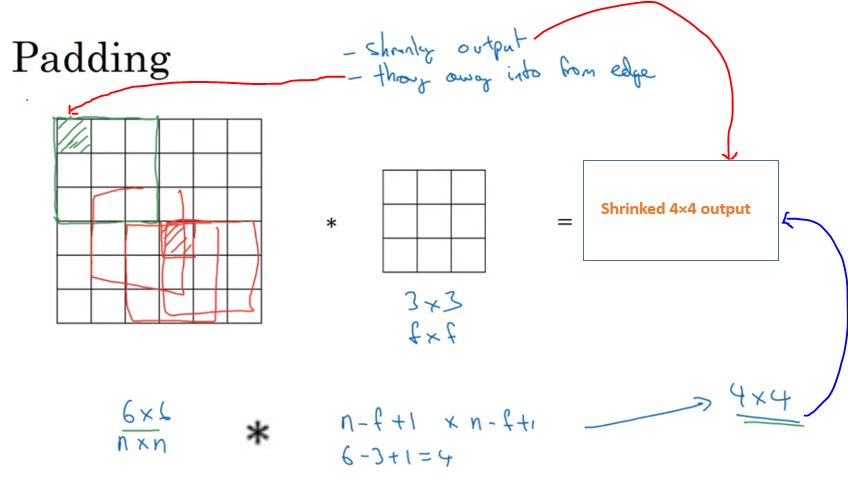 Padding
- shrinky output
- throw away info from edge
* =
Shrinked 4×4 output
3 × 3
f × f
6 × 6
n × n
*
n-f+1 × n-f+1
6-3+1=4
4 × 4